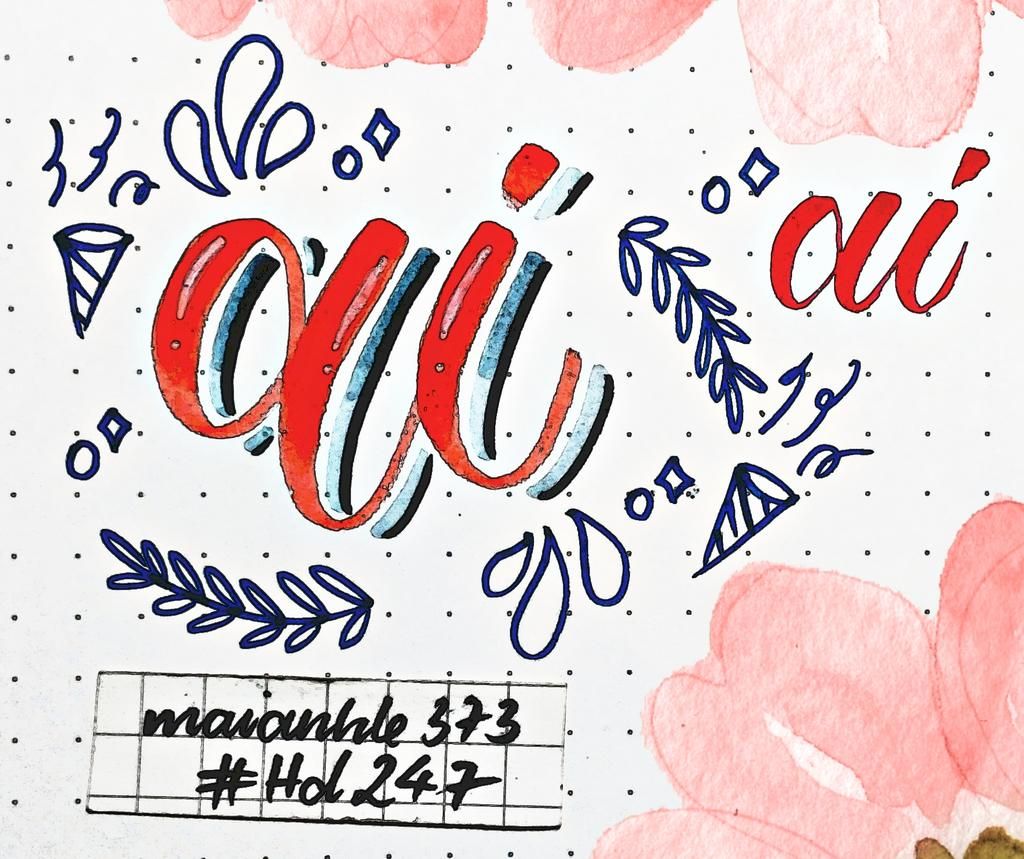 ai
ai
maianhle 373
#Hd247